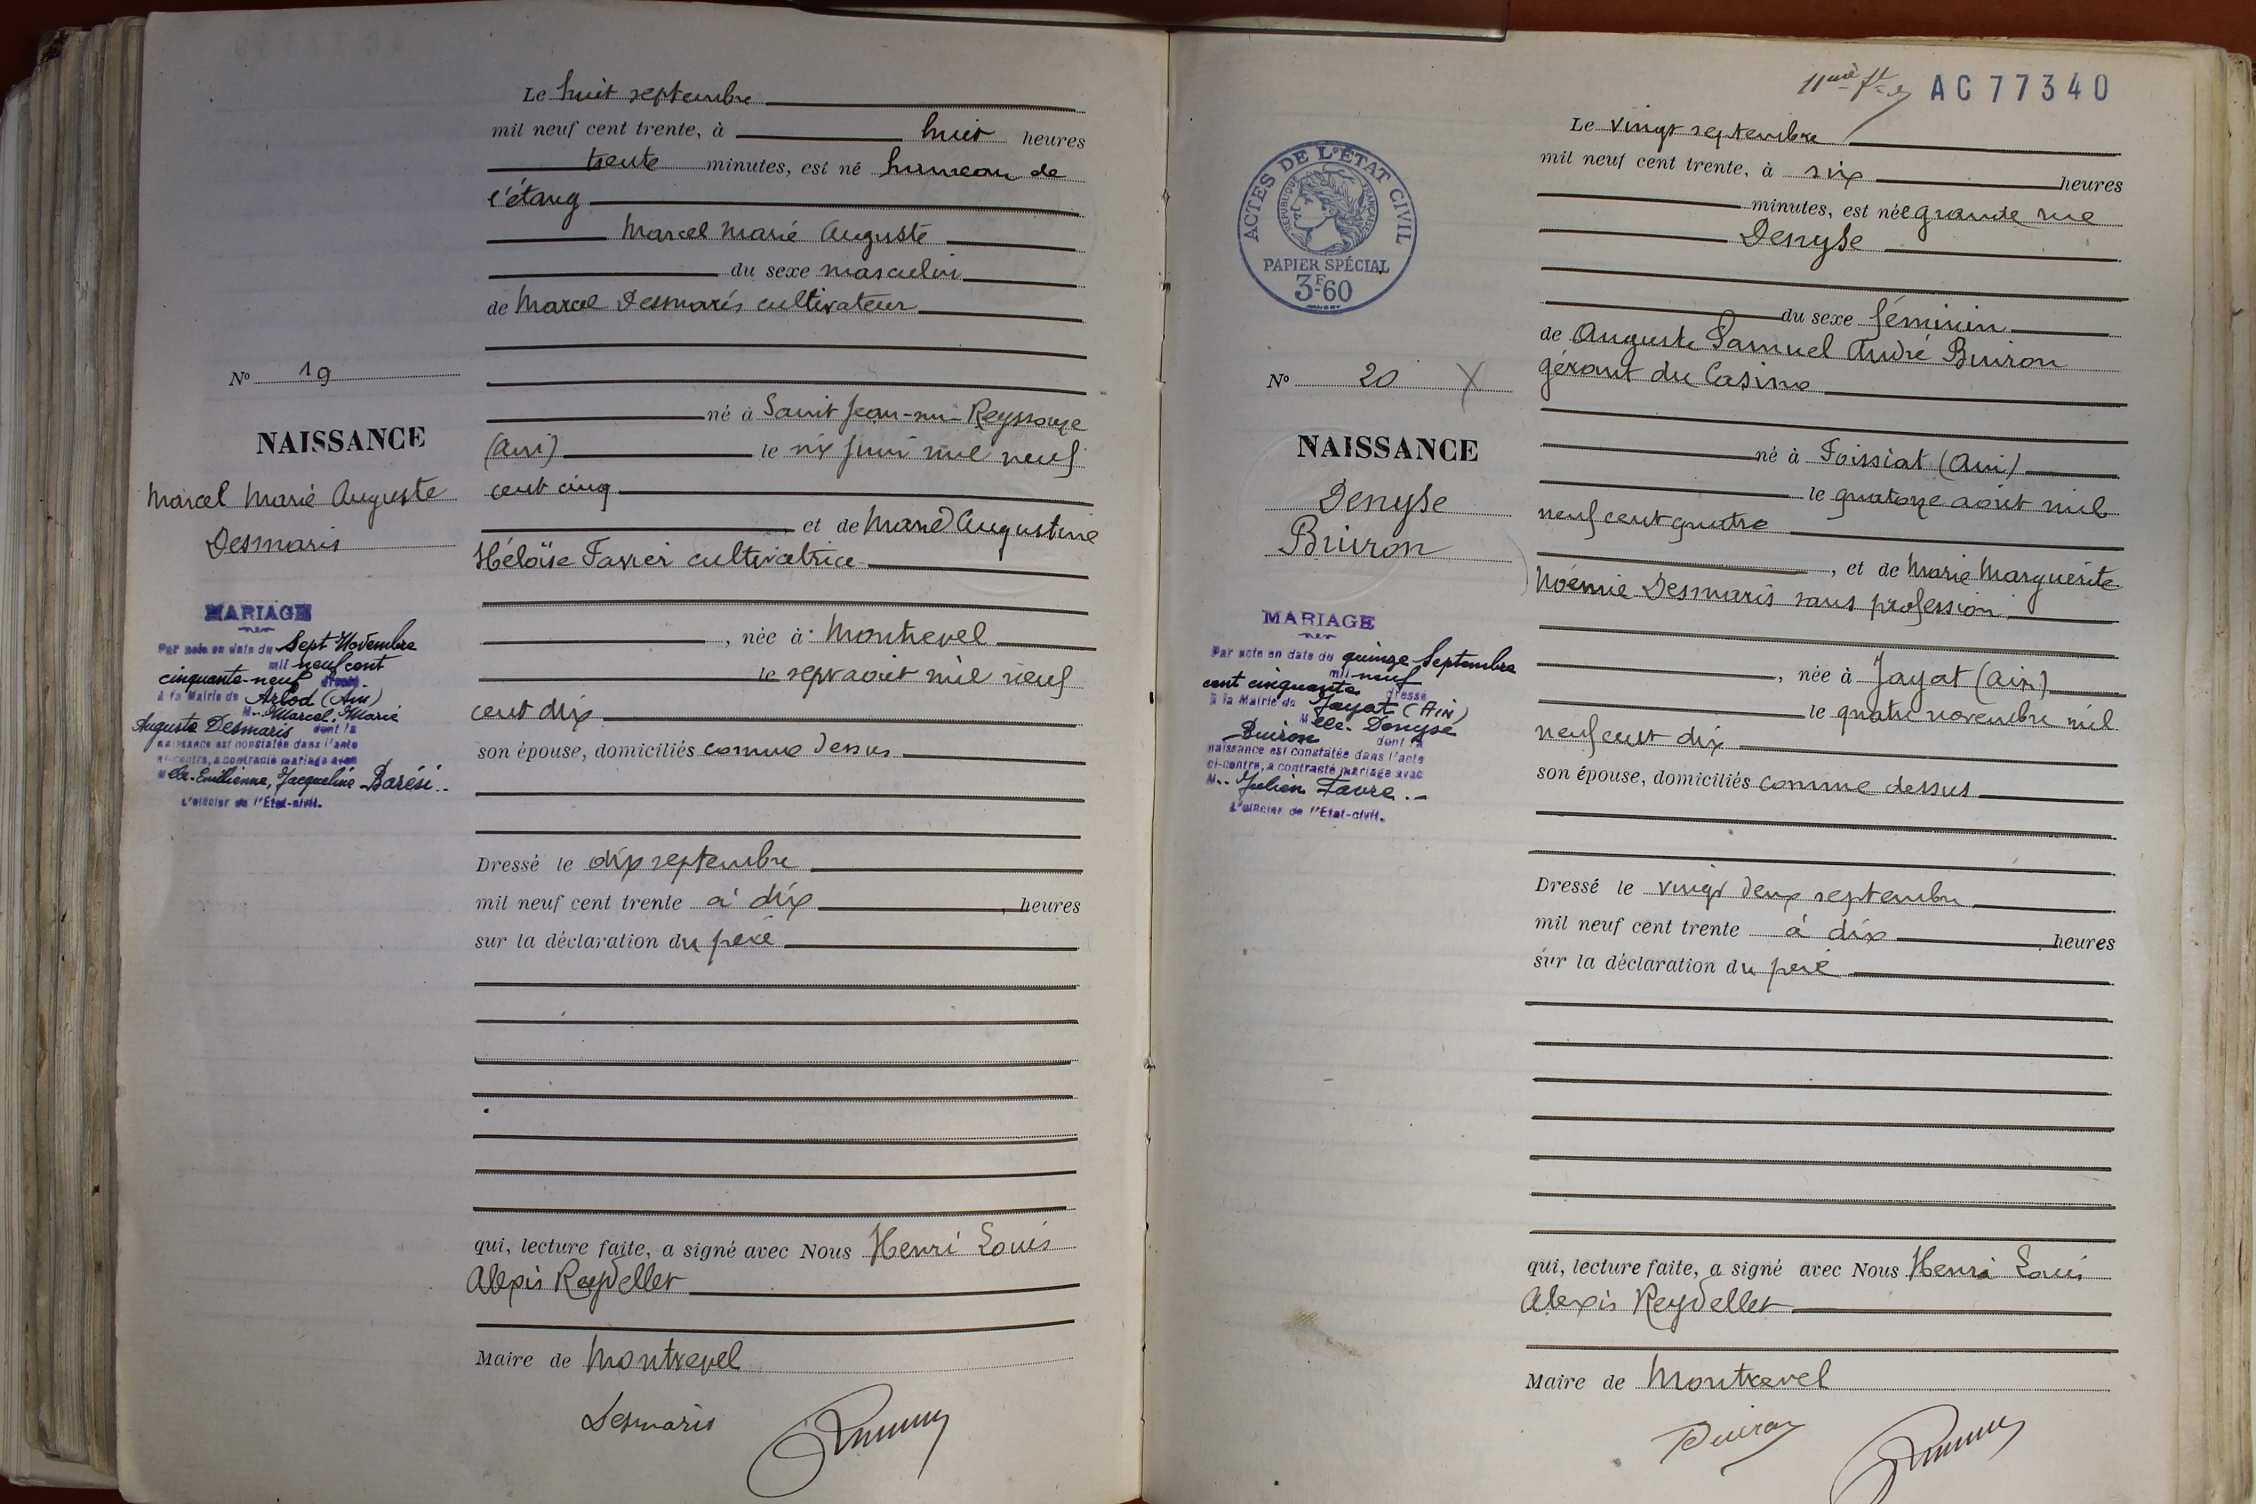 Le huit septembre
mil neuf cent trente, à huit heures
trente minutes, est né hameau de
l'étang
Marcel Marie Auguste
du sexe masculin
de Marcel Desmaris cultivateur
né à Saint Jean-sur-Reyssouze
(Ain) le six juin mil neuf
cent cinq
et de Marie Augustine
Héloïse Favier cultivatrice
, née à Montrevel
le sept août mil neuf
cent dix
son épouse, domiciliés comme dessus
Dressé le dix septembre
mil neuf cent trente à dix heures
sur la déclaration du père
qui, lecture faite, a signé avec Nous Henri Louis
Alexis Reydellet
Maire de Montrevel
Desmaris
No 19
NAISSANCE
Marcel Marie Auguste
Desmaris
MARIAGE
Par acte en date du Sept Novembre
mil neuf cent
cinquante-neuf dressé
à la Mairie de Arlod (Ain)
M.. Marcel, Marie
Auguste Desmaris dont la
naissance est constatée dans l'acte
ci-contre, a contracté mariage avec
Melle. Emilienne, Jacqueline Barési..
L'officier de l'Etat-civil.
11ème ft AC 77340
ACTES DE L'ÉTAT CIVIL
RÉPUBLIQUE FRANÇAISE
PAPIER SPÉCIAL
3F.60
Le vingt septembre
mil neuf cent trente, à six heures
minutes, est née grande rue
Denyse
du sexe féminin
de Auguste Samuel André Buiron
gérant du Casino
né à Foissiat (Ain)
le quatorze août mil
neuf cent quatre
, et de Marie Marguerite
Noémie Desmaris sans profession
, née à Jayat (Ain)
le quatre novembre mil
neuf cent dix
son épouse, domiciliés comme dessus
Dressé le vingt deux septembre
mil neuf cent trente à dix heures
sur la déclaration du père
qui, lecture faite, a signé avec Nous Henri Louis
Alexis Reydellet
Maire de Montrevel
Buiron
No 20 X
NAISSANCE
Denyse
Buiron
MARIAGE
Par acte en date du quinze Septembre
mil neuf
cent cinquante dressé
à la Mairie de Jayat (AIN)
Melle. Denyse
Buiron dont la
naissance est constatée dans l'acte
ci-contre, a contracté mariage avec
M.. Julien Favre.-
L'officier de l'Etat-civil.